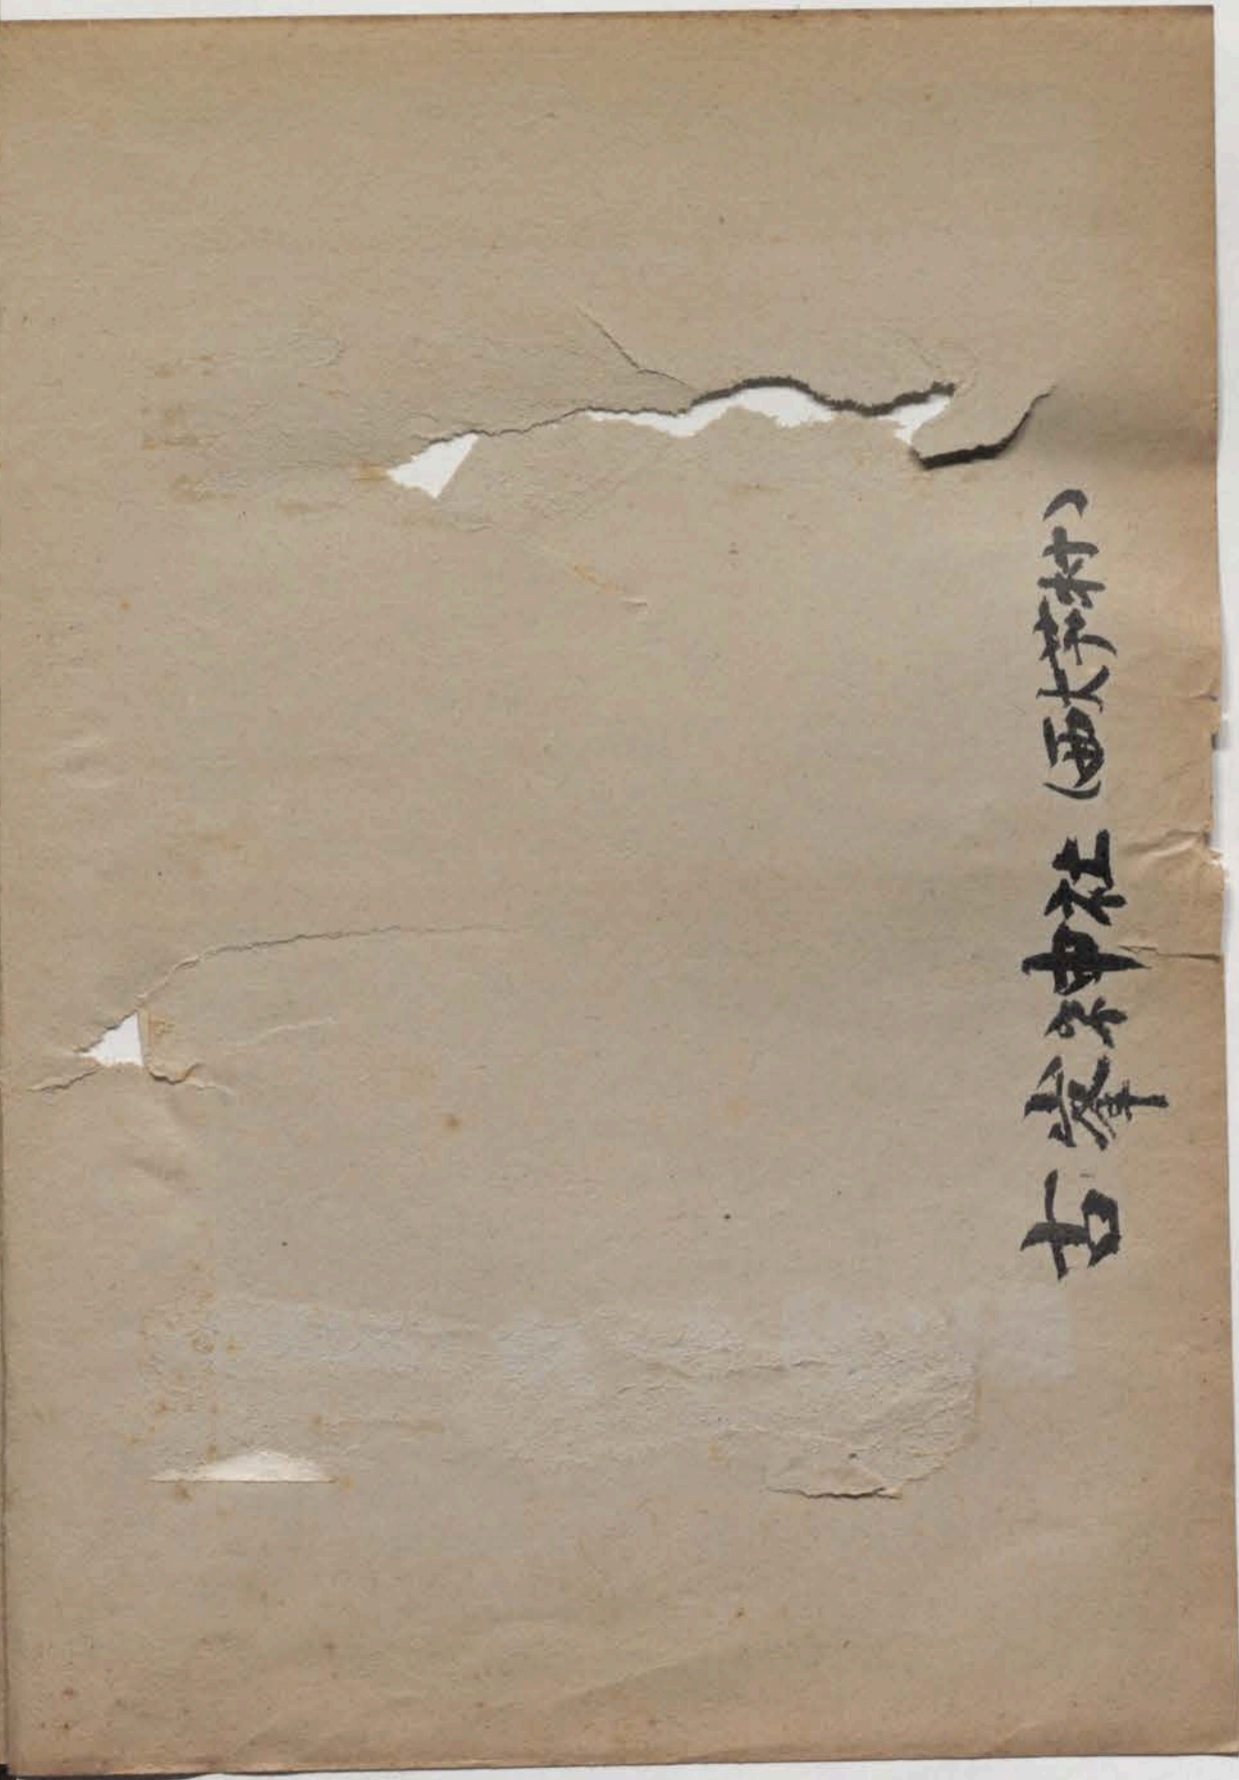 古峯神社(西大芦村)